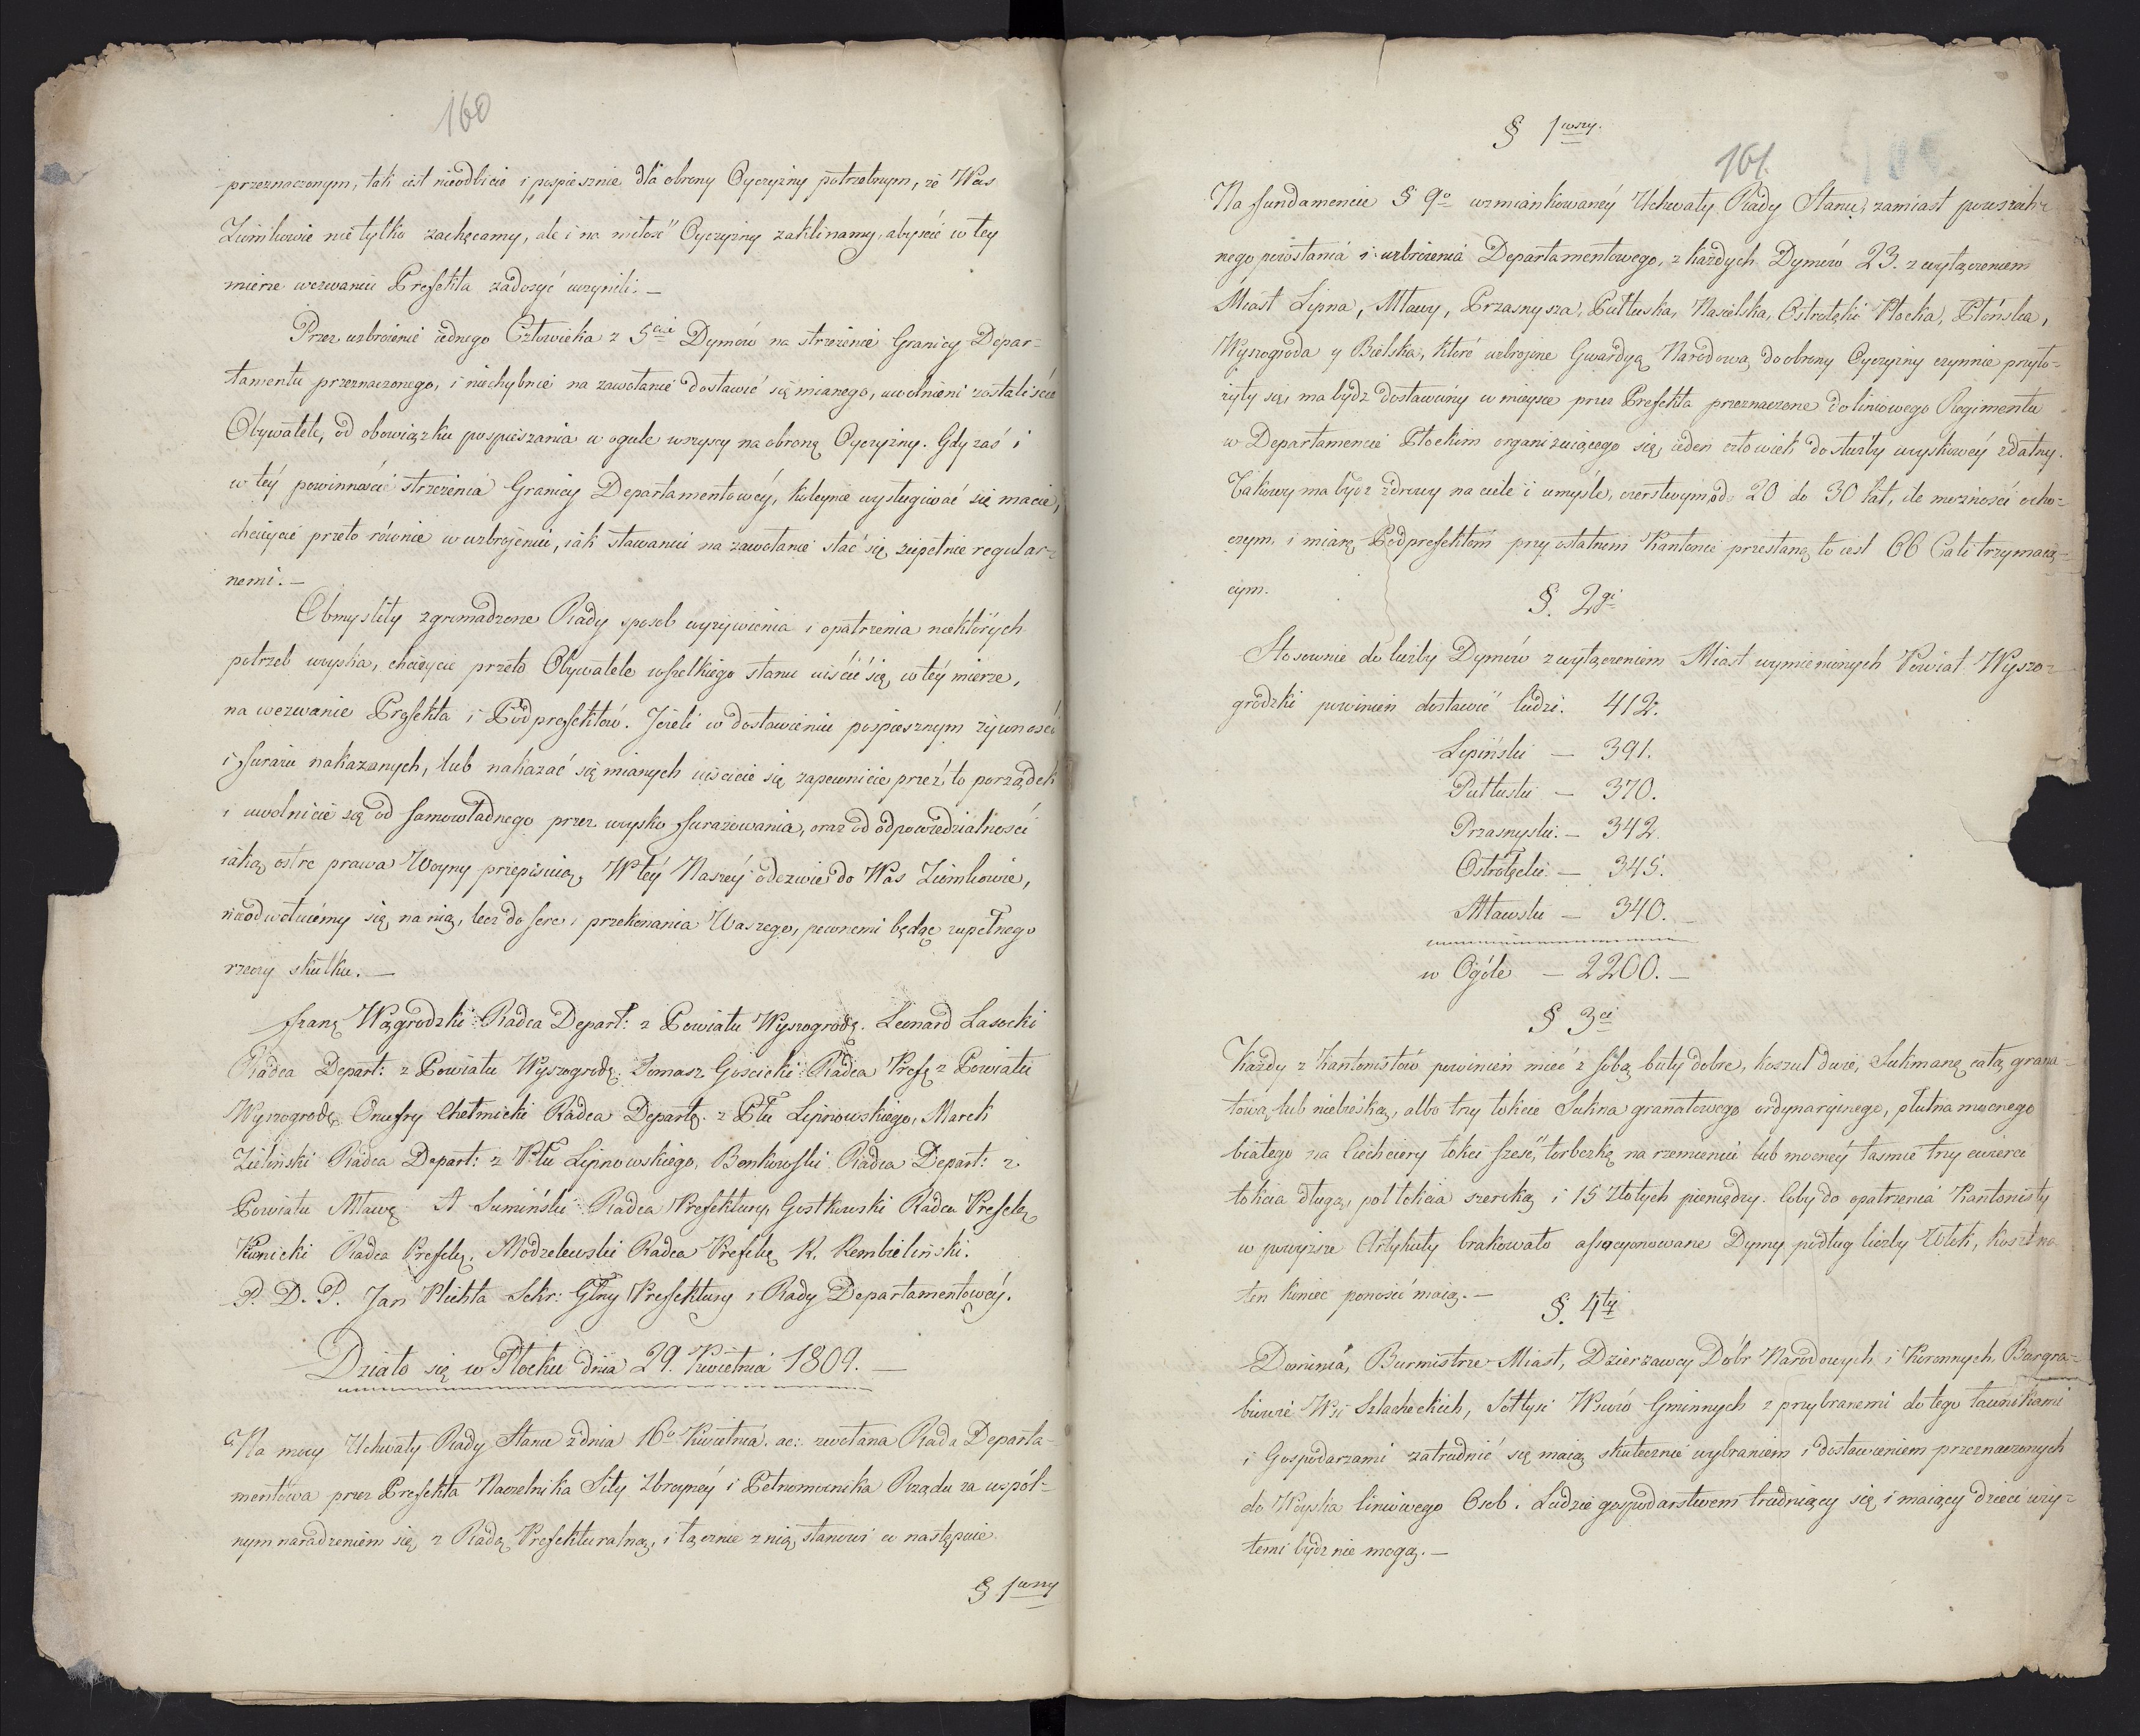 160
przeznaczonym, tak iest nieodbicie i pospiesznie dla obrony Oyczyzny potrzebnym, że Was
Ziomkowie nie tylko zachęcamy, ale i na miłość Oyczyzny zaklinamy, abyście w tey
mierze wezwaniu Prefekta zadosyć uczynili. —
Przez uzbroienie iednego Człowieka z 5ciu Dymów na strzeżenie Granicy Depar-
tamentu przeznaczonego, i niechybnie na zawołanie dostawić się mianego, uwolnieni zostaliście
Obywatele, od obowiązku pospieszania w ogule wszyscy na obronę Oyczyzny. Gdy zaś i
w téy powinności strzeżenia Granicy Departamentowéy, koleynie wysługiwać się macie,
chcieycie przeto równie w uzbrojeniu, iak stawaniu na zawołanie stać się zupełnie regular-
nemi. —
Obmyśliły zgromadzone Rady sposob wyżywienia i opatrzenia niektórych
potrzeb woyska, chcieycie przeto Obywatele wszelkiego stanu uiścić się w téy mierze,
na wezwanie Prefekta i Podprefektów. Jeżeli w dostawieniu pospiesznym żywności
i furażu nakazanych, lub nakazać się mianych uiścicie się, zapewnicie przez to porządek
i uwolnicie się od samowładnego przez woysko furażowania, oraz od odpowiedzialności
iaką ostre prawa Woyny przepisuią. W téy Naszéy odezwie do Was Ziomkowie,
nieodwołuiemy się na nią, lecz do serc i przekonania Waszego, pewnemi będąc zupełnego
rzeczy skutku. —
Franę Wągrodzki Radca Depart: z Powiatu Wyszogrodę. Leonard Lasocki
Radca Depart: z Powiatu Wyszogrodę. Tomasz Gościcki Radca Prefę z Powiatu
Wyszogrodę. Onufry Chełmicki Radca Departę. z Ptu Lipnowskiego, Marek
Zieliński Radca Depart: z Ptu Lipnowskiego, Bonkowski Radca Depart: z
Powiatu Mławę. A Sumiński Radca Prefektury, Gostkowski Radca Prefekę
Kunicki Radca Prefekę. Modzelewski Radca Prefekę R. Rembieliński.
P. D. P. Jan Plichta Sekr: Głny Prefektury i Rady Departamentowéy.
Działo się w Płocku dnia 29. Kwietnia 1809. —
Na mocy Uchwały Rady Stanu z dnia 16o Kwietnia ac: zwołana Rada Departa-
mentowa przez Prefekta Naczelnika Siły Zbroynéy i Pełnomocnika Rządu za wspól-
nym naradzeniem się z Radą Prefekturalną, i łącznie z nią stanowi co następuie
§ 1wszy
§ 1wszy.
161.
Na fundamencie § 9o wzmiankowanéy Uchwały Rady Stanu, zamiast powszech-
nego powstania i uzbroienia Departamentowego, z każdych Dymów 23. z wyłączeniem
Miast Lipna, Mławy, Przasnysza, Pułtuska, Nasielska, Ostrołęki Płocka, Płońska,
Wyszogroda y Bielska, które uzbrojone Gwardyą Narodową do obrony Oyczyzny czynnie przyło-
żyły się, ma bydź dostawiony w mieysce przez Prefekta przeznaczone do liniowego Regimentu
w Departamencie Płockim organizuiącego się, ieden człowiek do służby woyskowéy zdatny.
Takowy ma bydź zdrowy na ciele i umyśle, czerstwym, od 20 do 30 lat, ile możności ocho-
czym, i miarę Podprefektom przy ostatnim Kantonie przesłaną to iest 66 Cali trzymaią-
cym.
§. 2gi
Stosownie do liczby Dymów z wyłączeniem Miast wymienionych Powiat Wyszo-
grodzki powinien dostawić ludzi. 412.
Lipiński — 391.
Pułtuski — 370.
Przasnyski. — 342.
Ostrołęcki. — 345.
Mławski — 340. —
w Ogóle — 2200. —
§ 3ci
Każdy z Kantonistów powinien mieć z sobą buty dobre, koszul dwie, Sukmanę całą grana-
tową lub niebieską, albo try łokcie Sukna granatowego ordynaryinego, płutna mocnego
białego na Cuchciery łokci sześć, torbeczkę na rzemieniu lub mocnéy taśmie try ćwierci
łokcia długą, poł łokcia szeroką i 15 Złotych pieniędzy. Coby do opatrzenia Kantonisty
w powyższe Artykuły brakowało assocyonowane Dymy podług liczby Włok, koszt na
ten koniec ponosić maią. —
§. 4ty
Dominia, Burmistrze Miast, Dzierżawcy Dóbr Narodowych i Koronnych, Burgra-
biowie Wsi Szlacheckich, Sołtysi Wsiów Gminnych z przybranemi do tego Ławnikami
i Gospodarzami zatrudnić się maią skutecznie wybraniem i dostawieniem przeznaczonych
do Woyska liniowego Osob. Ludzie gospodarstwem trudniący się i maiący dzieci wzię-
temi bydź nie mogą. —